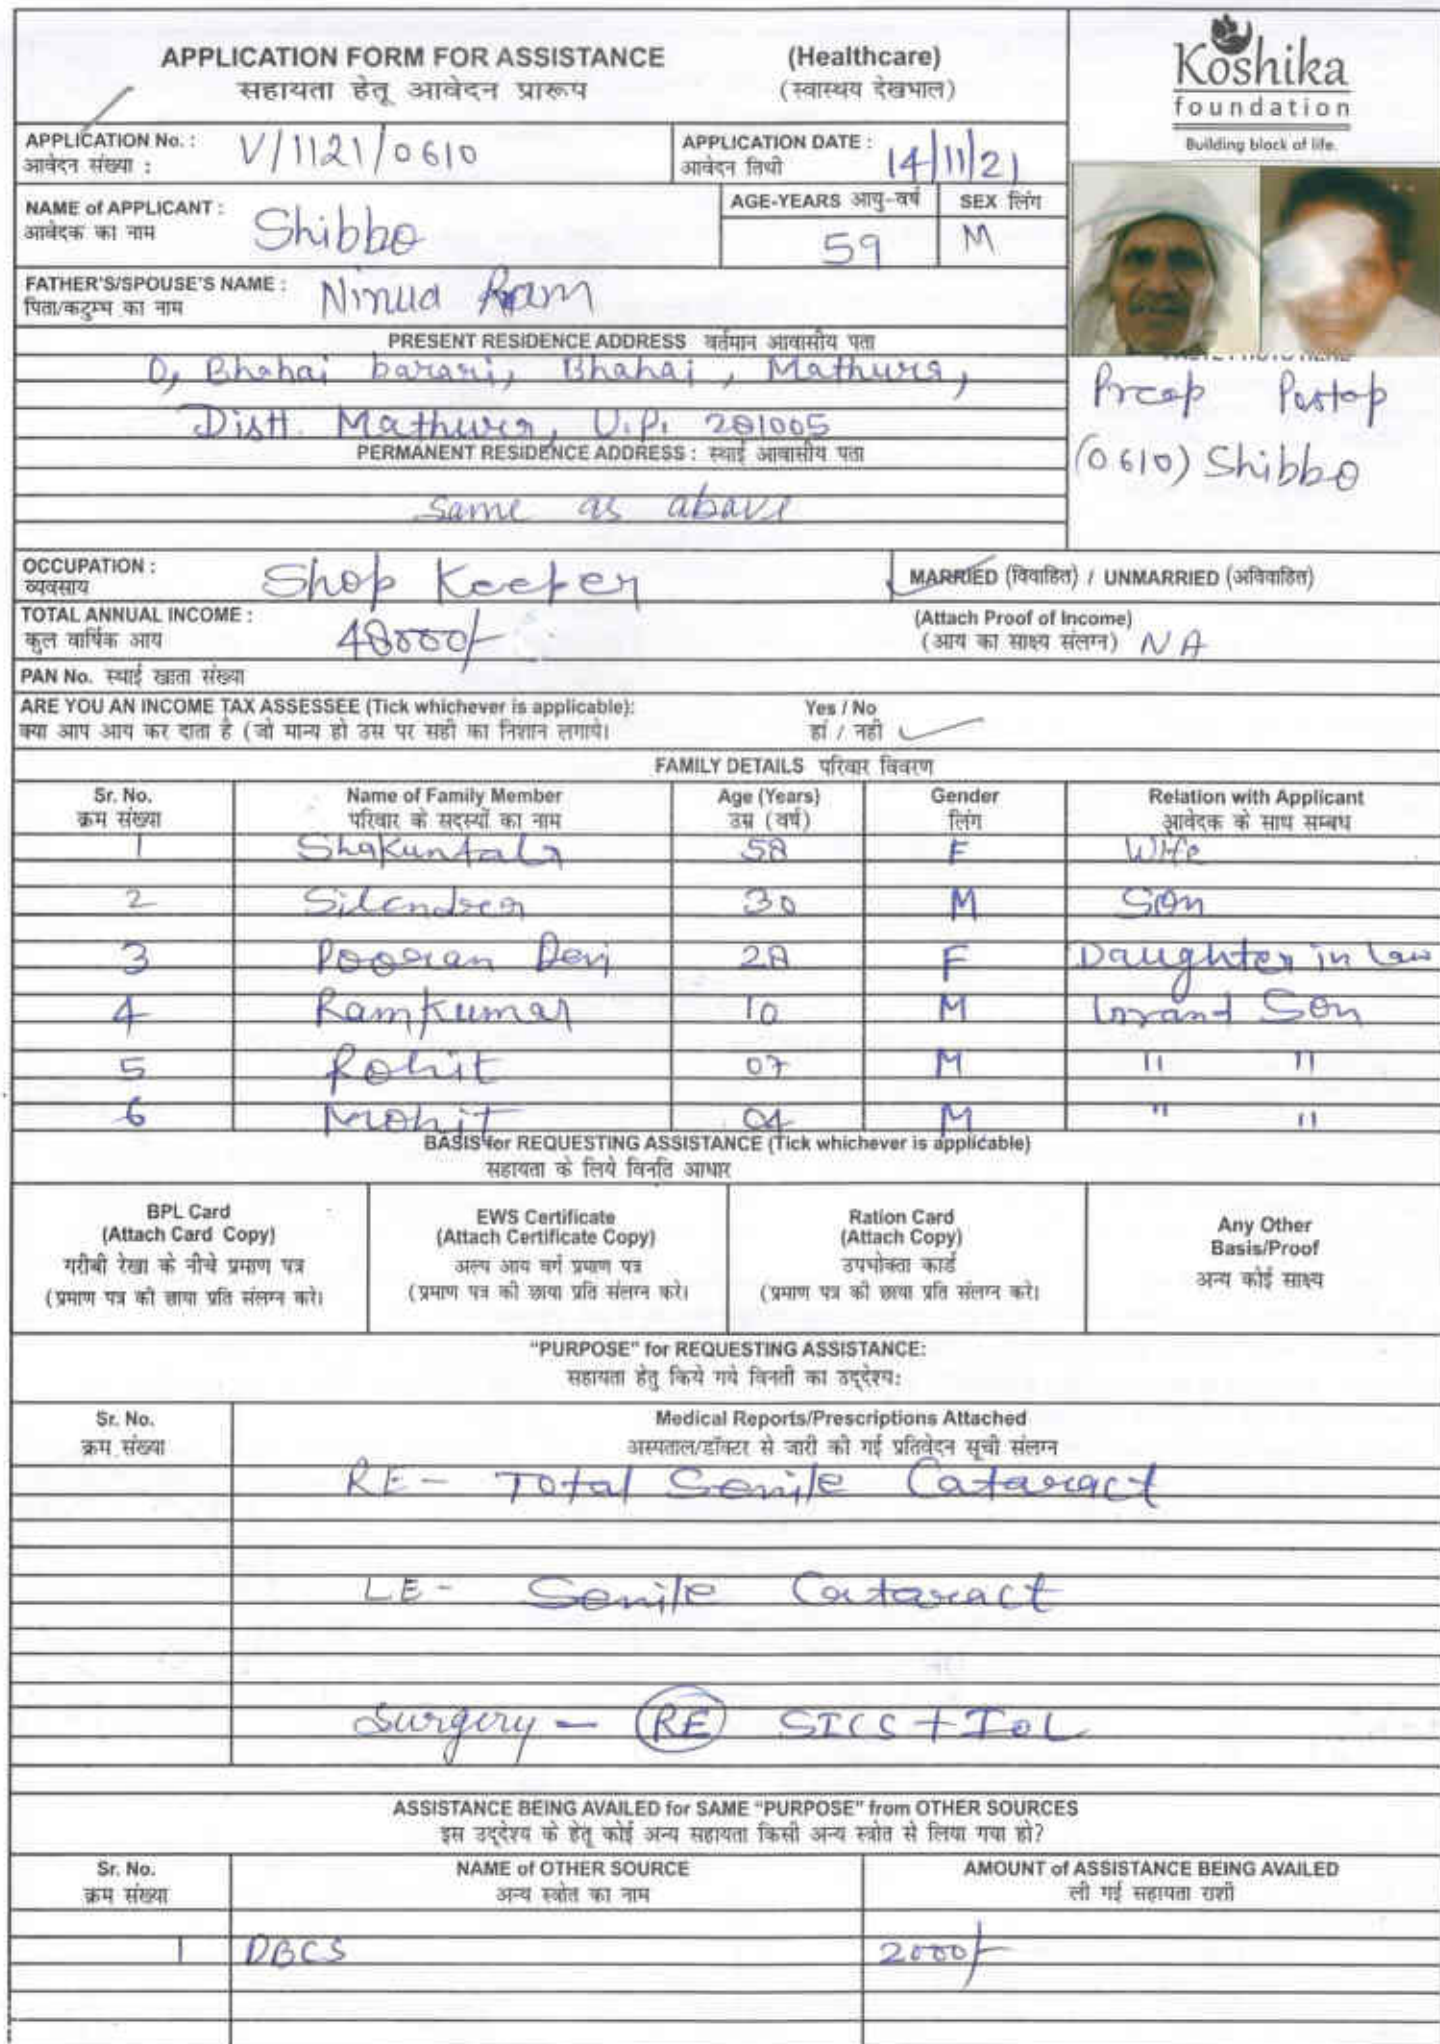 APPLICATION FORM FOR ASSISTANCE (Healthcare)
सहायता हेतू आवेदन प्रारूप (स्वास्थय देखभाल)
Koshika
foundation
Building block of life.
APPLICATION No. : V/1121/0610
आवेदन संख्या :
APPLICATION DATE : 14/11/21
आवेदन तिथी
NAME of APPLICANT : Shibbo
आवेदक का नाम
AGE-YEARS आयु-वर्ष SEX लिंग
59 M
FATHER'S/SPOUSE'S NAME : Ninua Ram
पिता/कटुम्ब का नाम
PRESENT RESIDENCE ADDRESS वर्तमान आवासीय पता
0, Bhahai barari, Bhahai, Mathura,
Distt. Mathura, U.P. 281005
PERMANENT RESIDENCE ADDRESS : स्थाई आवासीय पता
Same as above
Preop Postop
(0610) Shibbo
OCCUPATION : Shop Keeper
व्यवसाय
MARRIED (विवाहित) / UNMARRIED (अविवाहित)
TOTAL ANNUAL INCOME : 48000/-
कुल वार्षिक आय
(Attach Proof of Income)
(आय का साक्ष्य संलग्न) NA
PAN No. स्थाई खाता संख्या
ARE YOU AN INCOME TAX ASSESSEE (Tick whichever is applicable): Yes / No
क्या आप आय कर दाता है (जो मान्य हो उस पर सही का निशान लगाये। हां / नही
FAMILY DETAILS परिवार विवरण
Sr. No. Name of Family Member Age (Years) Gender Relation with Applicant
क्रम संख्या परिवार के सदस्यों का नाम उम्र (वर्ष) लिंग आवेदक के साथ सम्बध
1 Shakuntala 58 F Wife
2 Silendra 30 M Son
3 Pooran Devi 28 F Daughter in law
4 Ramkumar 10 M Grand Son
5 Rohit 07 M " "
6 Mohit 04 M " "
BASIS for REQUESTING ASSISTANCE (Tick whichever is applicable)
सहायता के लिये विनति आधार
BPL Card
(Attach Card Copy)
गरीबी रेखा के नीचे प्रमाण पत्र
(प्रमाण पत्र की छाया प्रति संलग्न करे।
EWS Certificate
(Attach Certificate Copy)
अल्प आय वर्ग प्रमाण पत्र
(प्रमाण पत्र की छाया प्रति संलग्न करे।
Ration Card
(Attach Copy)
उपभोक्ता कार्ड
(प्रमाण पत्र की छाया प्रति संलग्न करे।
Any Other
Basis/Proof
अन्य कोई साक्ष्य
"PURPOSE" for REQUESTING ASSISTANCE:
सहायता हेतु किये गये विनती का उद्देश्य:
Sr. No. Medical Reports/Prescriptions Attached
क्रम संख्या अस्पताल/डॉक्टर से जारी की गई प्रतिवेदन सूची संलग्न
RE - Total Senile Cataract
LE - Senile Cataract
Surgery - RE SICS + IOL
ASSISTANCE BEING AVAILED for SAME "PURPOSE" from OTHER SOURCES
इस उद्देश्य के हेतू कोई अन्य सहायता किसी अन्य स्त्रोत से लिया गया हो?
Sr. No. NAME of OTHER SOURCE AMOUNT of ASSISTANCE BEING AVAILED
क्रम संख्या अन्य स्त्रोत का नाम ली गई सहायता राशी
1 DBCS 2000/-